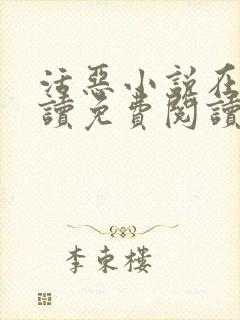 活惡小說在
讀免費閱讀
李東樓